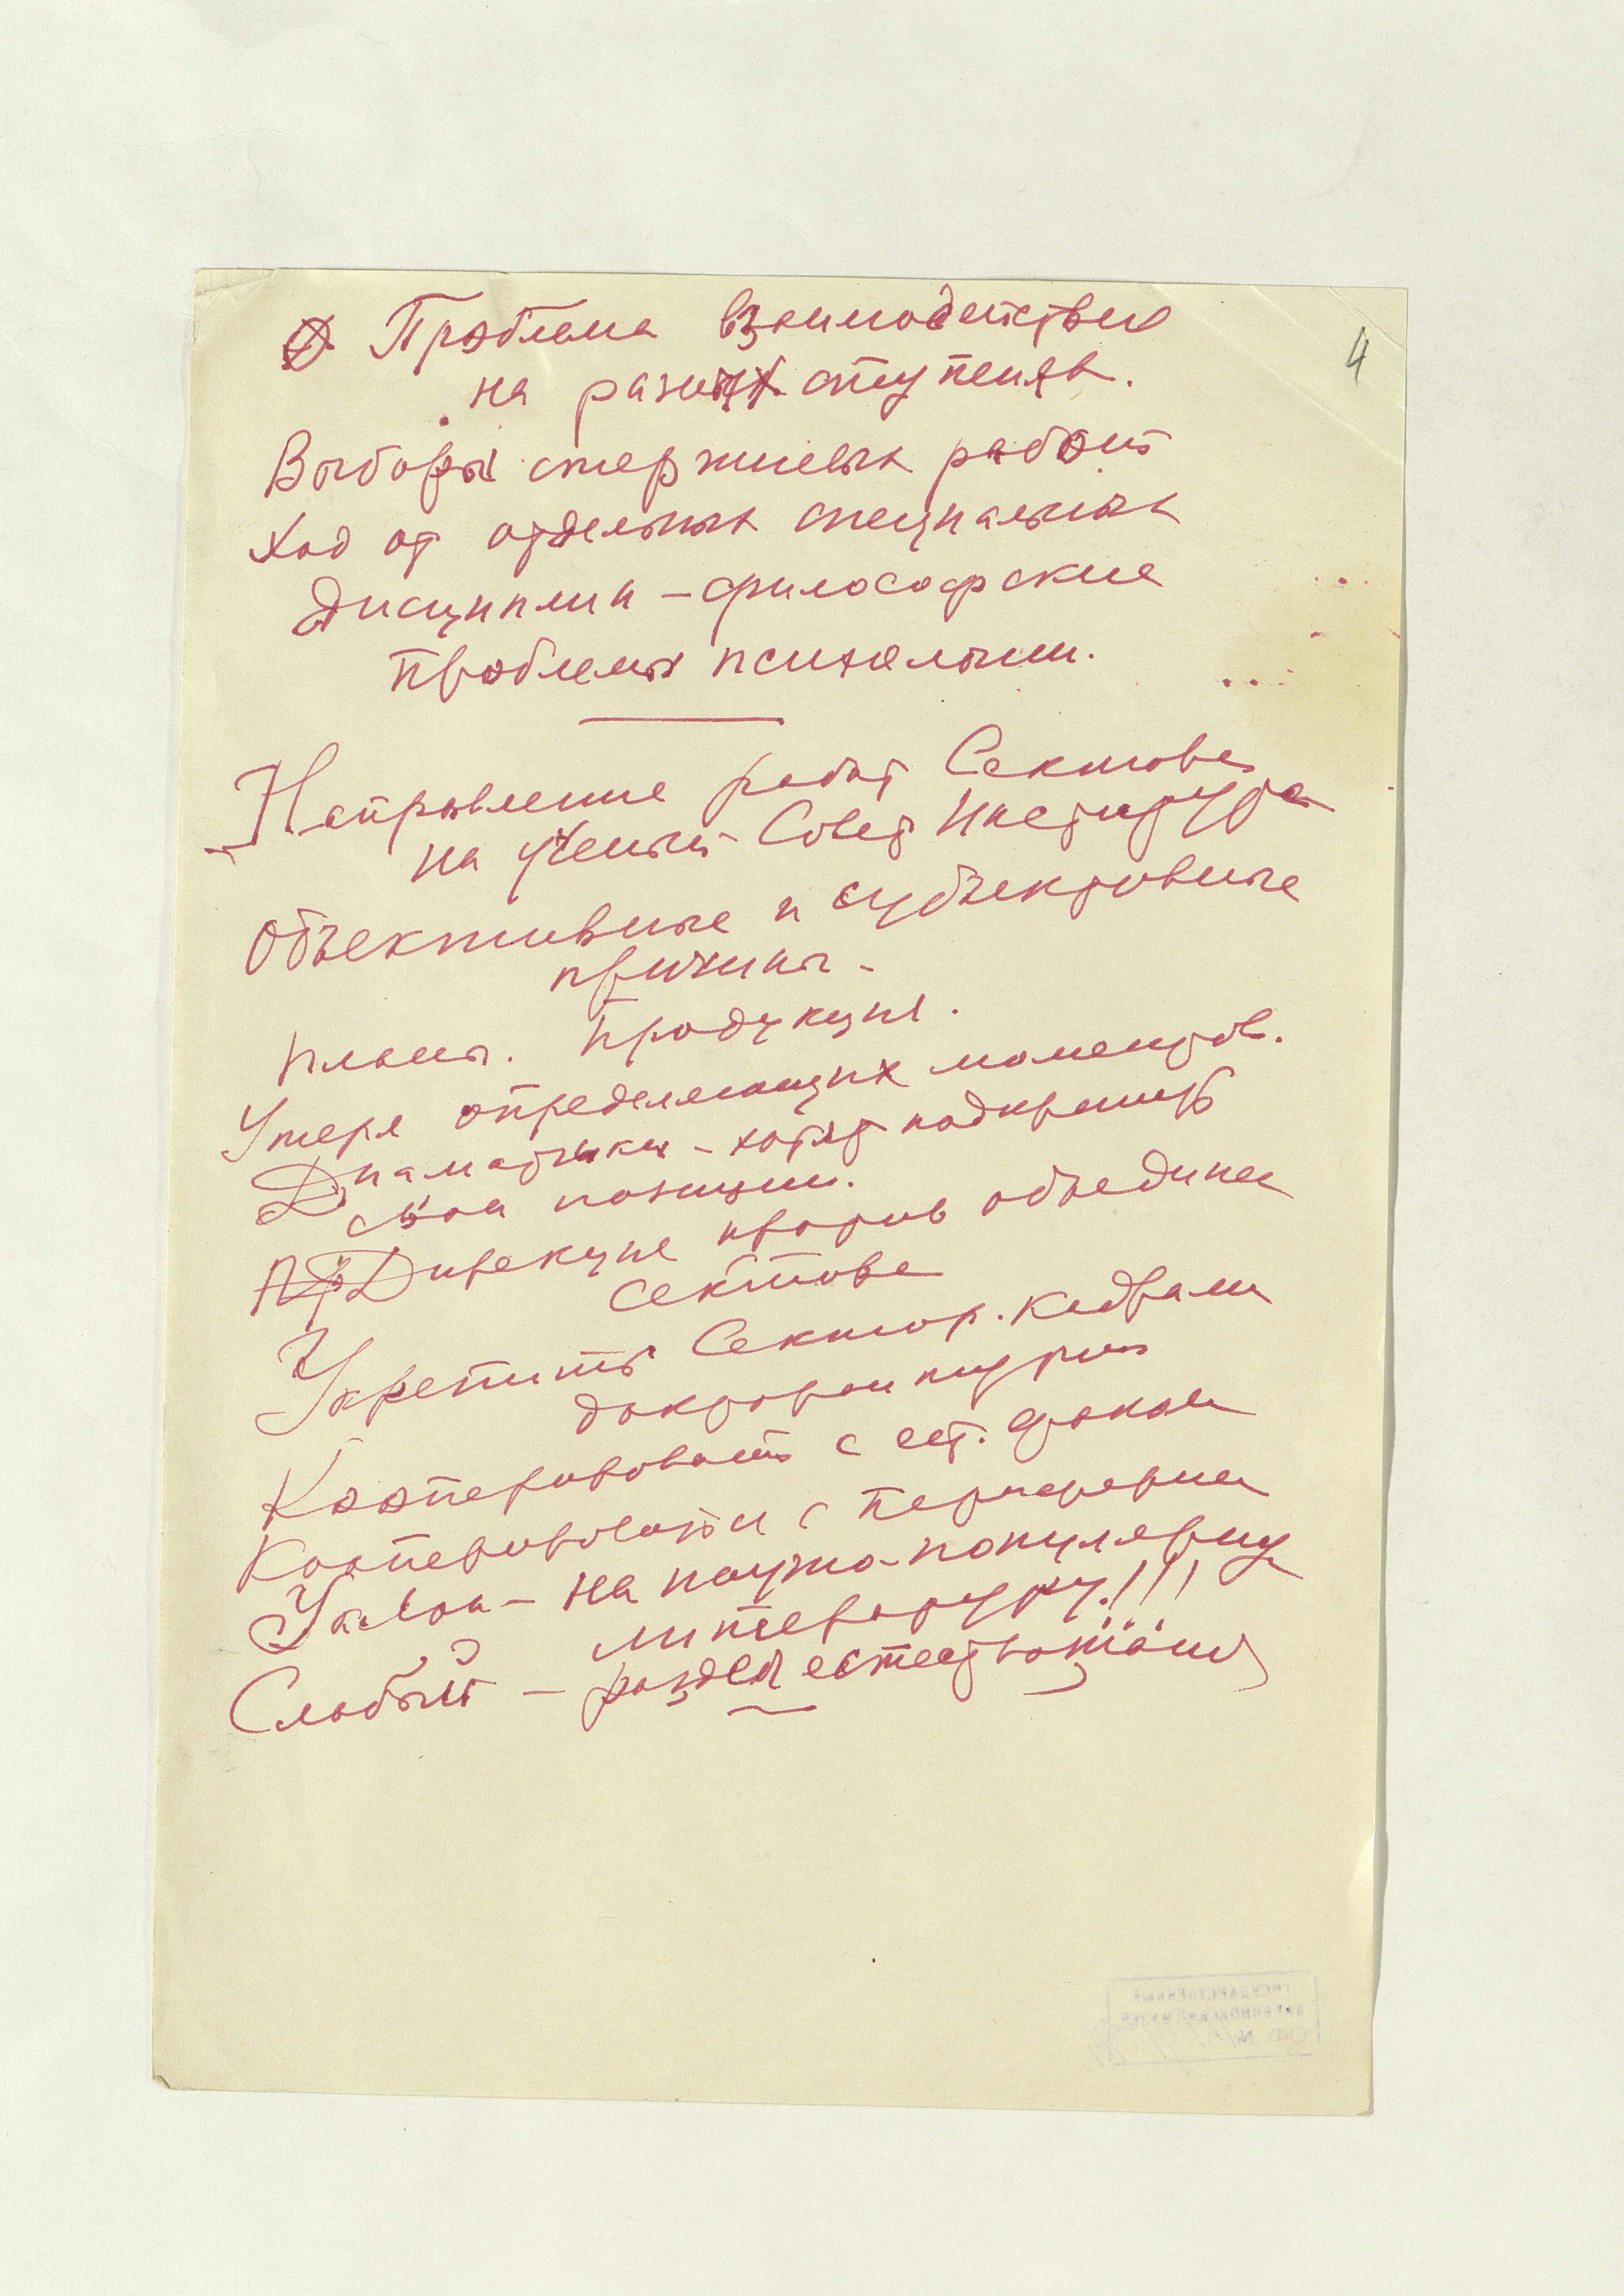 4
Проблема взаимодействия
на разных ступенях.
Выборы стержневых работ
Ход от отдельных специальных
дисциплин – философские
проблемы психологии.
Направление работ Сектора
на Ученый Совет Института
Объективные и субъективные
причины –
Планы. Продукция.
Утеря определяющих моментов.
Диаматчики – хотят подкрепить
свои позиции.
Дирекция против объединен
сектора
Укрепить Сектор. кадрами
докторантуры
Кооперировать с ест. факом
Кооперироваться с периферией
Уклон – на научно-популярную
литературу!!!
Слабый – раздел естествознания